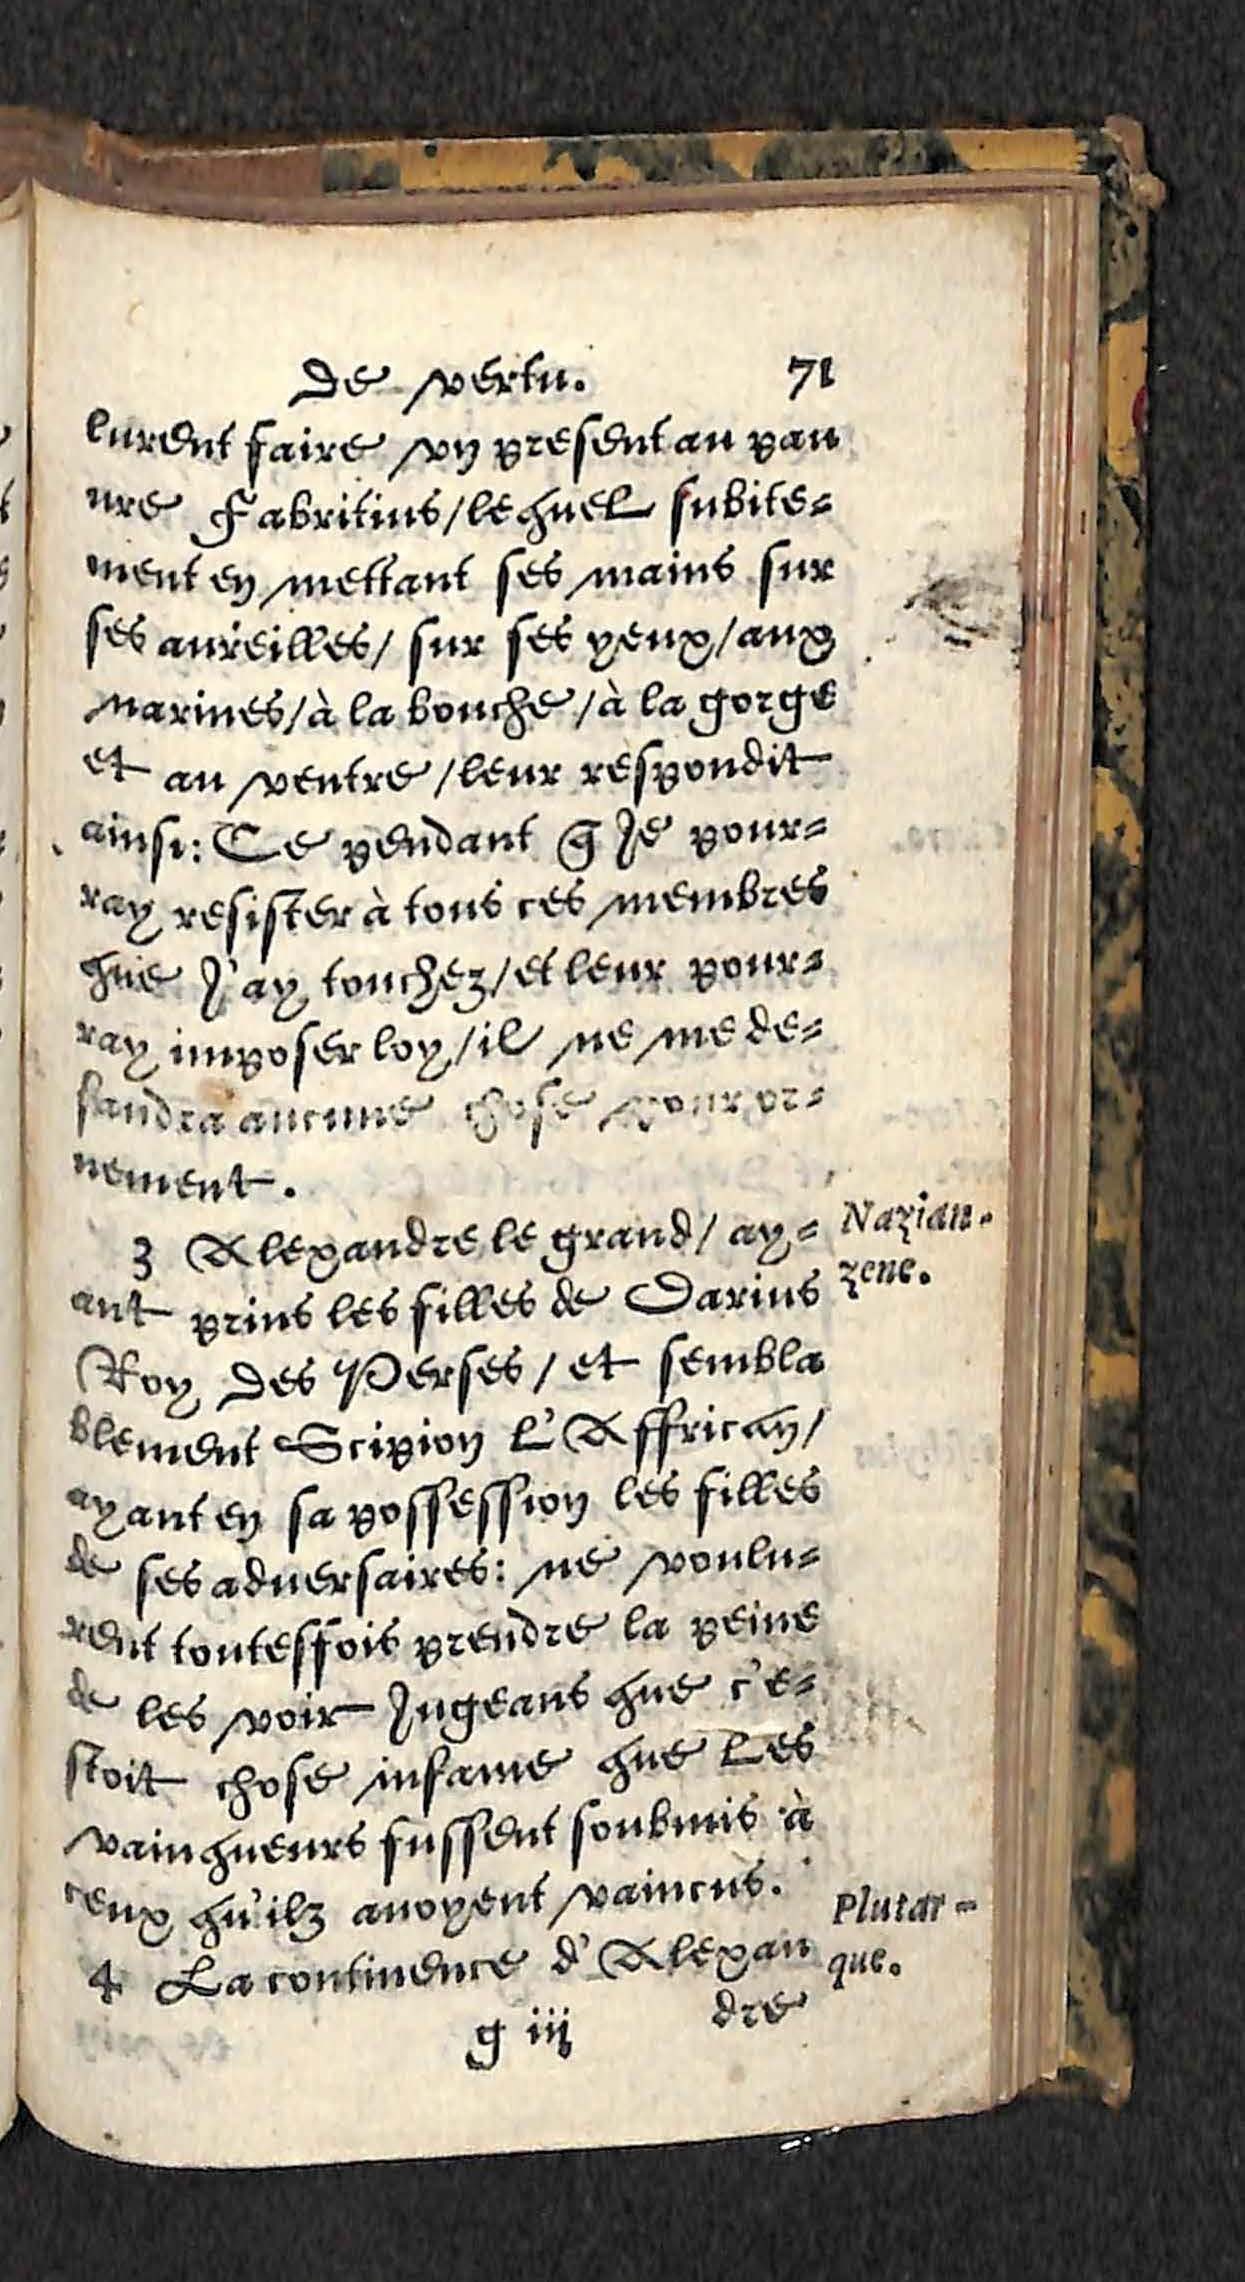 de vertu. 71
lurent faire vn present au pau
ure Fabritius/lequel subite=
ment en mettant ses mains sur
ses aureilles/ sur ses yeux/aux
narines/à la bouche/à la gorge
et au ventre/leur respondit
ainsi: Ce pendant q̃ Je pour=
ray resister à tous ces membres
que J'ay touchez/et leur pour=
ray imposer loy/il ne me de=
faudra aucune chose pour or=
nement.
3 Alexandre le grand/ ay= Nazian-
ant prins les filles de Darius zene.
Roy des Perses/ et sembla
blement Scipion L'Affrican/
ayant en sa possession les filles
de ses aduersaires: ne voulu=
rent toutesfois prendre la peine
de les voir Jugeans que c'e=
stoit chose infame que Les
vainqueurs fussent soubmis à
ceux qu'ilz auoyent vaincus.
4 La continence d'Alexan Plutar-
dre que.
g iij